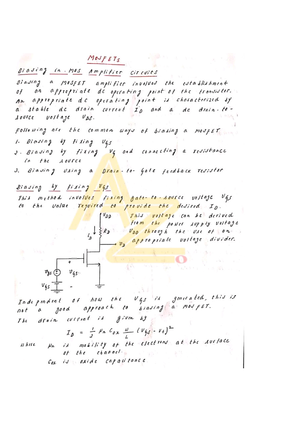 MOSFETs
Biasing in MOS Amplifier Circuits
Biasing a MOSFET amplifier involves the establishment
of an appropriate dc operating point of the transistor.
An appropriate dc operating point is characterised by
a stable dc drain current ID and a dc drain-to-
source voltage VDS.
Following are the common ways of biasing a MOSFET.
1. Biasing by fixing VGS
2. Biasing by fixing VG and connecting a resistance
in the source
3. Biasing using a Drain-to-Gate feedback resistor
Biasing by fixing VGS
This method involves fixing gate-to-source voltage VGS
to the value required to provide the desired ID.
VDD
This voltage can be derived
from the power supply voltage
VDD through the use of an
appropriate voltage divider.
ID
RD
VD
VGS
VGS
Independent of how the VGS is generated, this is
not a good approach to biasing a MOSFET.
The drain current is given by
ID = 1/2 μn Cox W/L (VGS - Vt)²
where μn is mobility of the electrons at the surface
of the channel
Cox is oxide capacitance